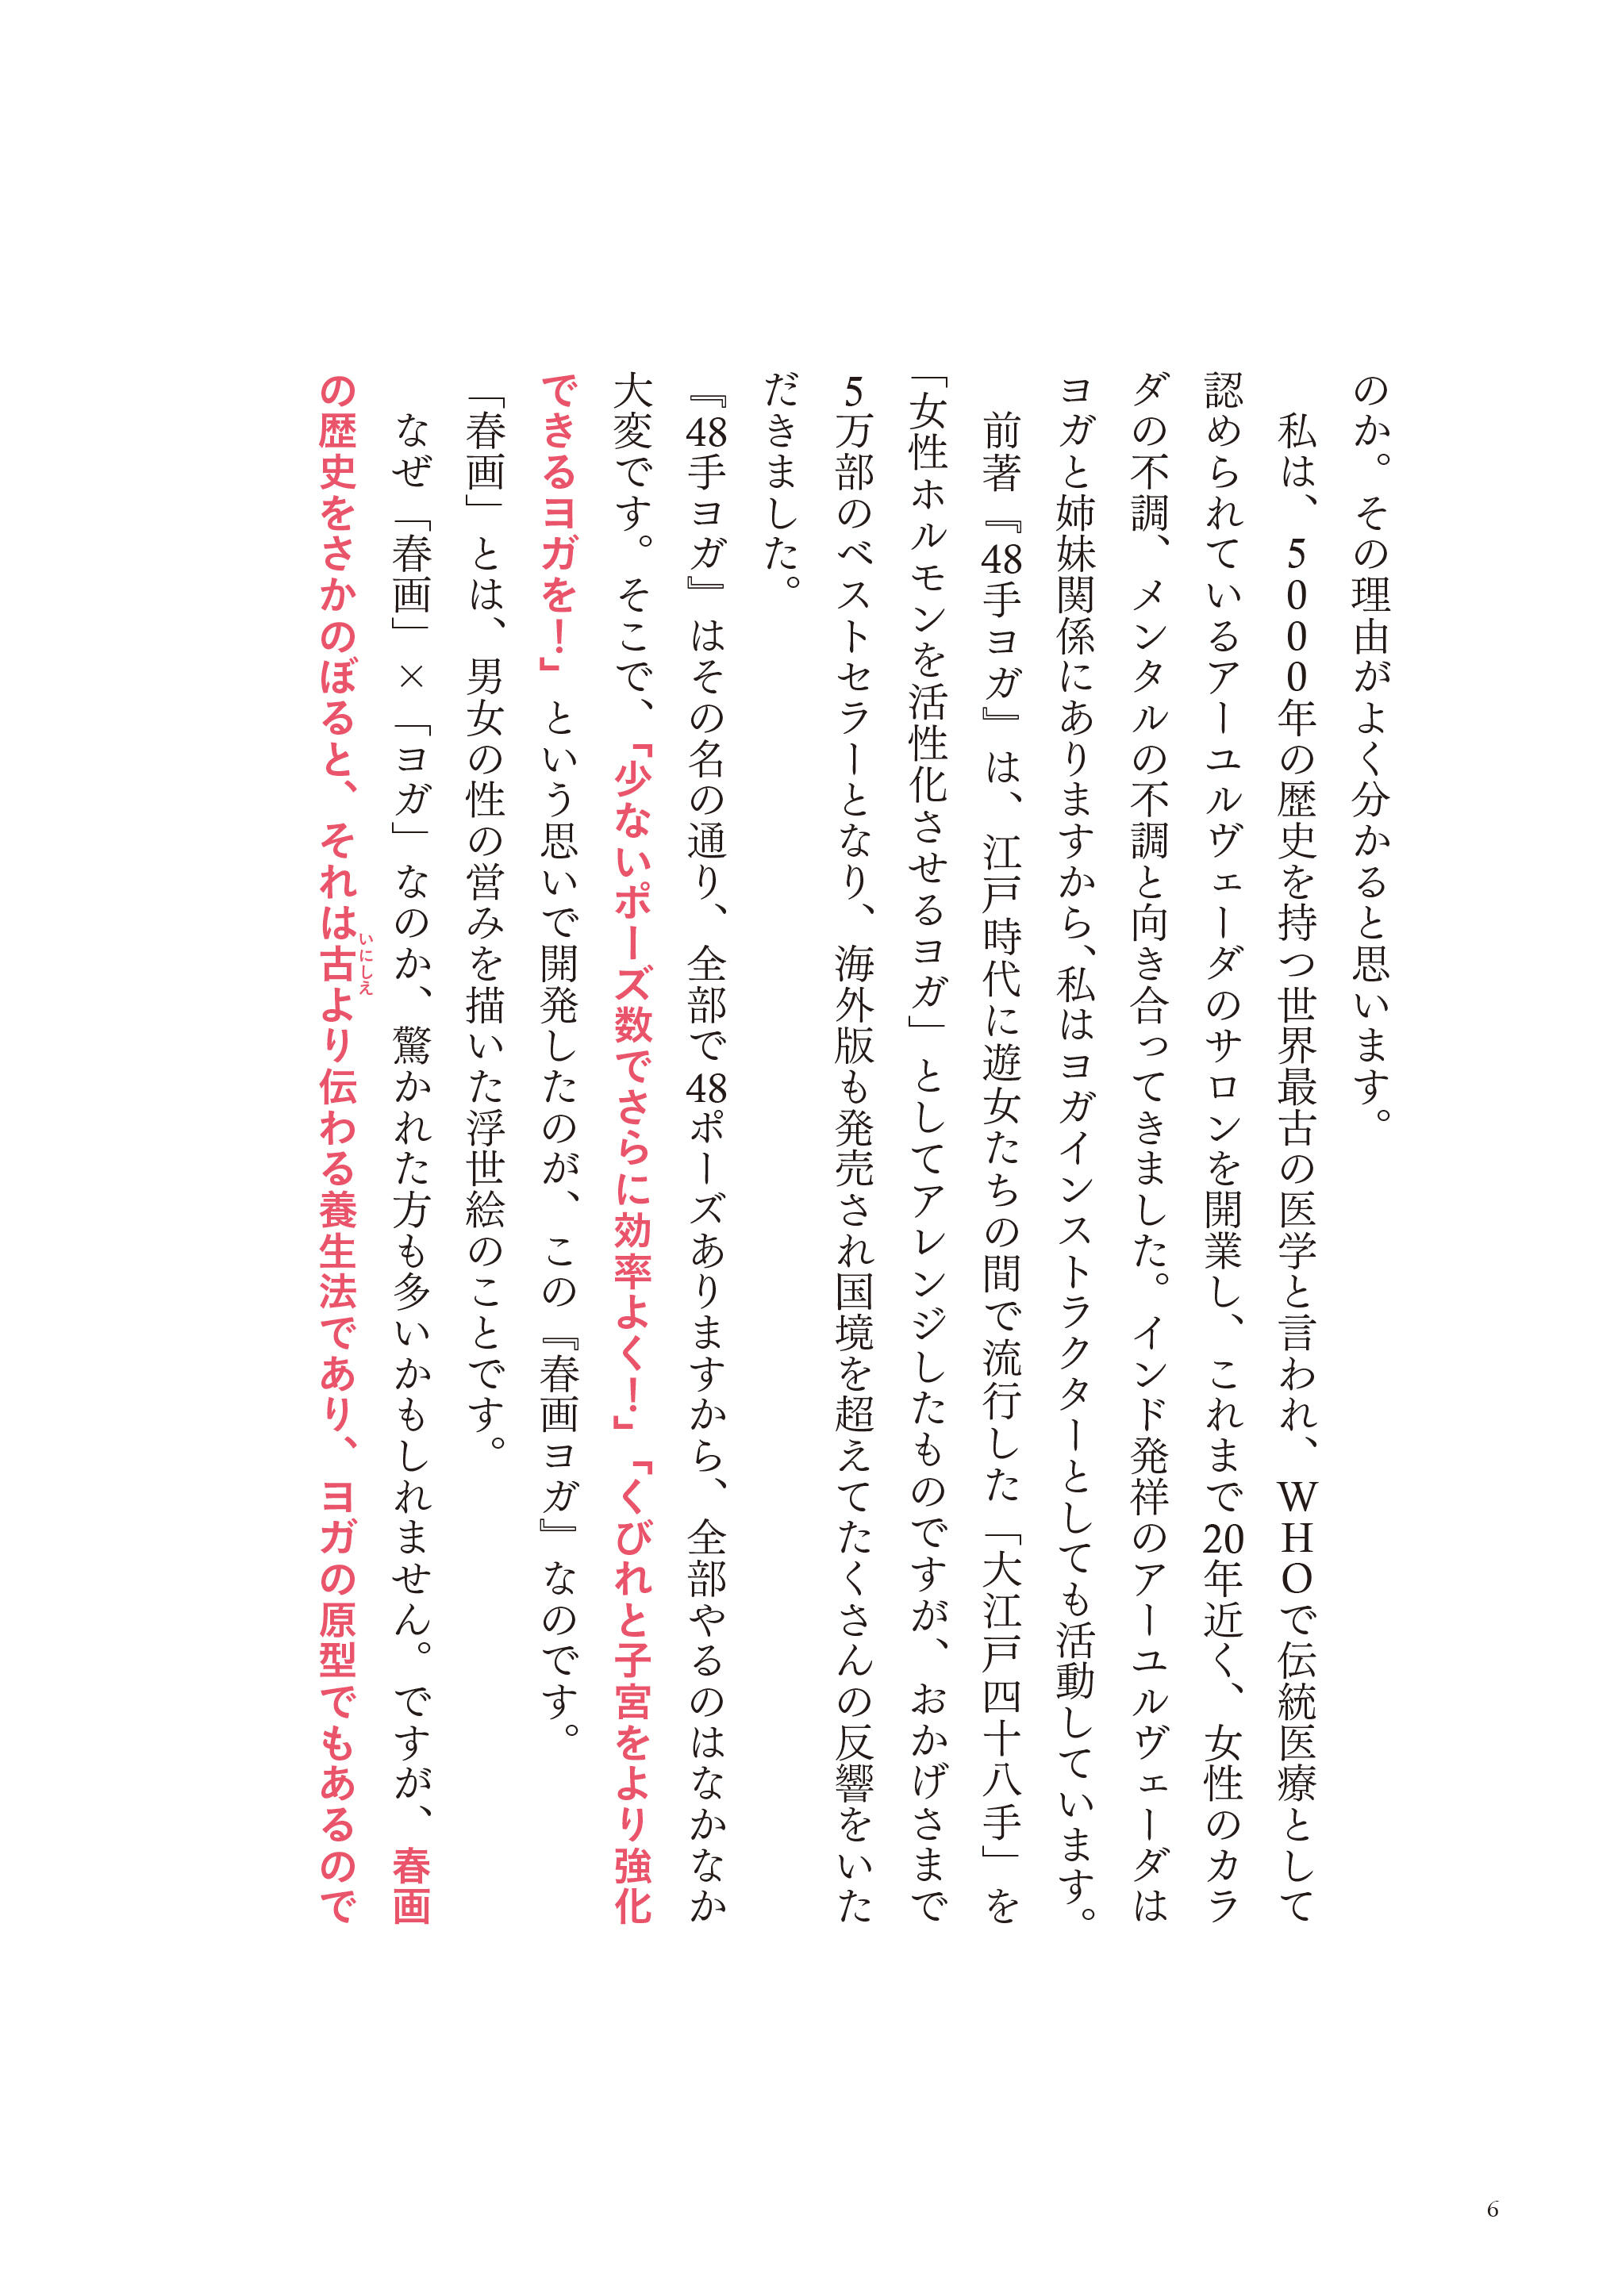 のか。その理由がよく分かると思います。
　私は、5000年の歴史を持つ世界最古の医学と言われ、WHOで伝統医療として
認められているアーユルヴェーダのサロンを開業し、これまで20年近く、女性のカラ
ダの不調、メンタルの不調と向き合ってきました。インド発祥のアーユルヴェーダは
ヨガと姉妹関係にありますから、私はヨガインストラクターとしても活動しています。
　前著『48手ヨガ』は、江戸時代に遊女たちの間で流行した「大江戸四十八手」を
「女性ホルモンを活性化させるヨガ」としてアレンジしたものですが、おかげさまで
5万部のベストセラーとなり、海外版も発売され国境を超えてたくさんの反響をいた
だきました。
『48手ヨガ』はその名の通り、全部で48ポーズありますから、全部やるのはなかなか
大変です。そこで、「少ないポーズ数でさらに効率よく！」「くびれと子宮をより強化
できるヨガを！」という思いで開発したのが、この『春画ヨガ』なのです。
「春画」とは、男女の性の営みを描いた浮世絵のことです。
　なぜ「春画」×「ヨガ」なのか、驚かれた方も多いかもしれません。ですが、春画
の歴史をさかのぼると、それは古いにしえより伝わる養生法であり、ヨガの原型でもあるので
6